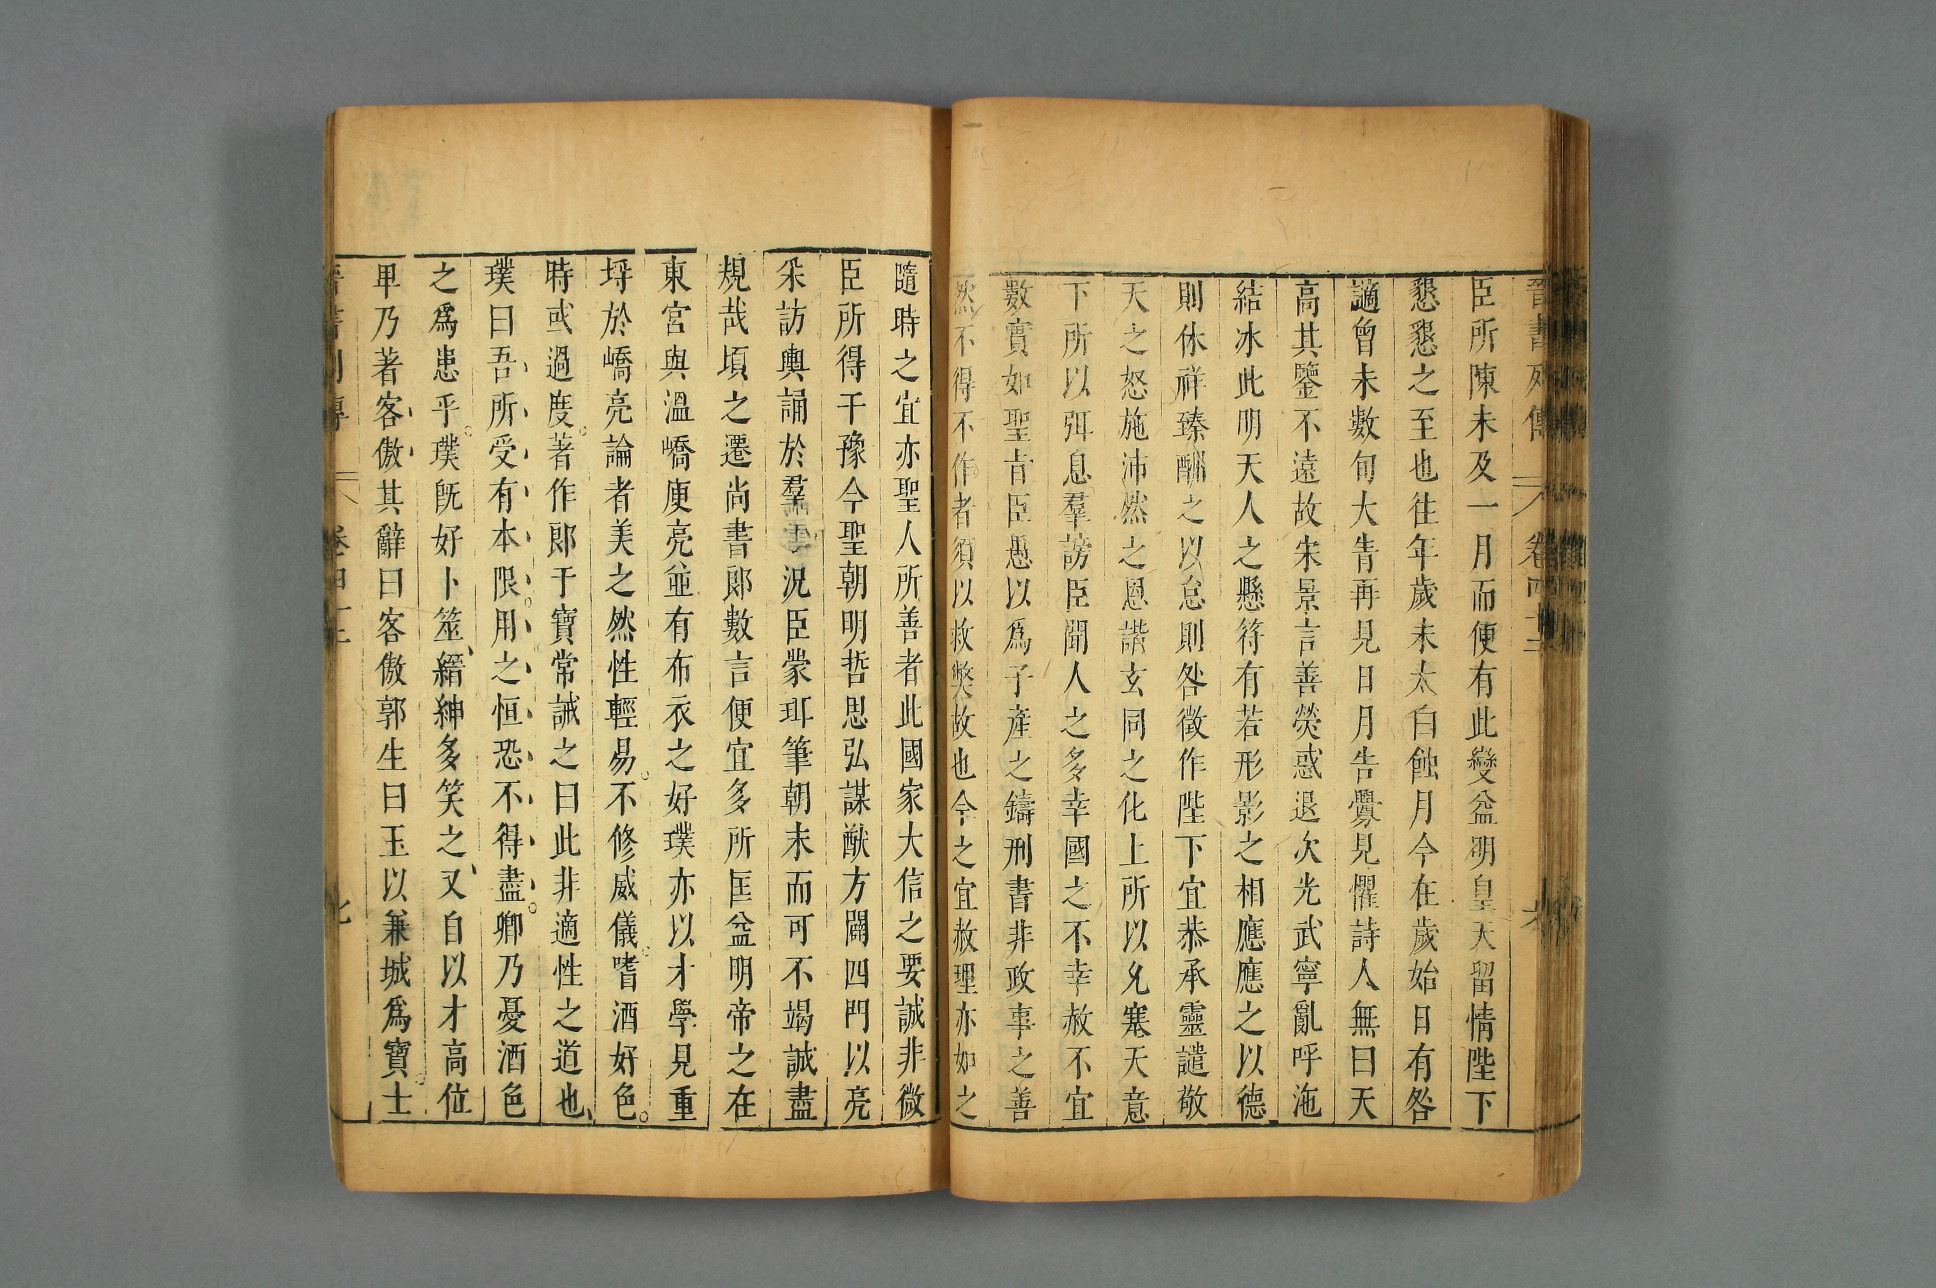 晉書列傳 卷四十二
臣所陳未及一月而便有此變益明皇天留情陛下
懇懇之至也往年歲末太白蝕月今在歲始日有咎
謫曾未數旬大眚再見日月告釁見懼詩人無曰天
高其鑒不遠故宋景言善熒惑退次光武寧亂呼沲
結冰此明天人之懸符有若形影之相應應之以德
則休祥臻酬之以怠則咎徵作陛下宜恭承靈譴敬
天之怒施沛然之恩諧玄同之化上所以允塞天意
下所以弭息羣謗臣聞人之多幸國之不幸赦不宜
數實如聖旨臣愚以爲子產之鑄刑書非政事之善
然不得不作者須以救弊故也今之宜赦理亦如之
隨時之宜亦聖人所善者此國家大信之要誠非微
臣所得干豫今聖朝明哲思弘謀猷方闢四門以亮
采訪輿誦於羣 況臣蒙珥筆朝末而可不竭誠盡
規哉頃之遷尚書郎數言便宜多所匡益明帝之在
東宮與溫嶠庾亮並有布衣之好璞亦以才學見重
埒於嶠亮論者美之然性輕易不修威儀嗜酒好色
時或過度著作郎于寶常誡之曰此非適性之道也
璞曰吾所受有本限用之恒恐不得盡卿乃憂酒色
之爲患乎璞旣好卜筮縉紳多笑之又自以才高位
卑乃著客傲其辭曰客傲郭生曰玉以兼城爲寶士